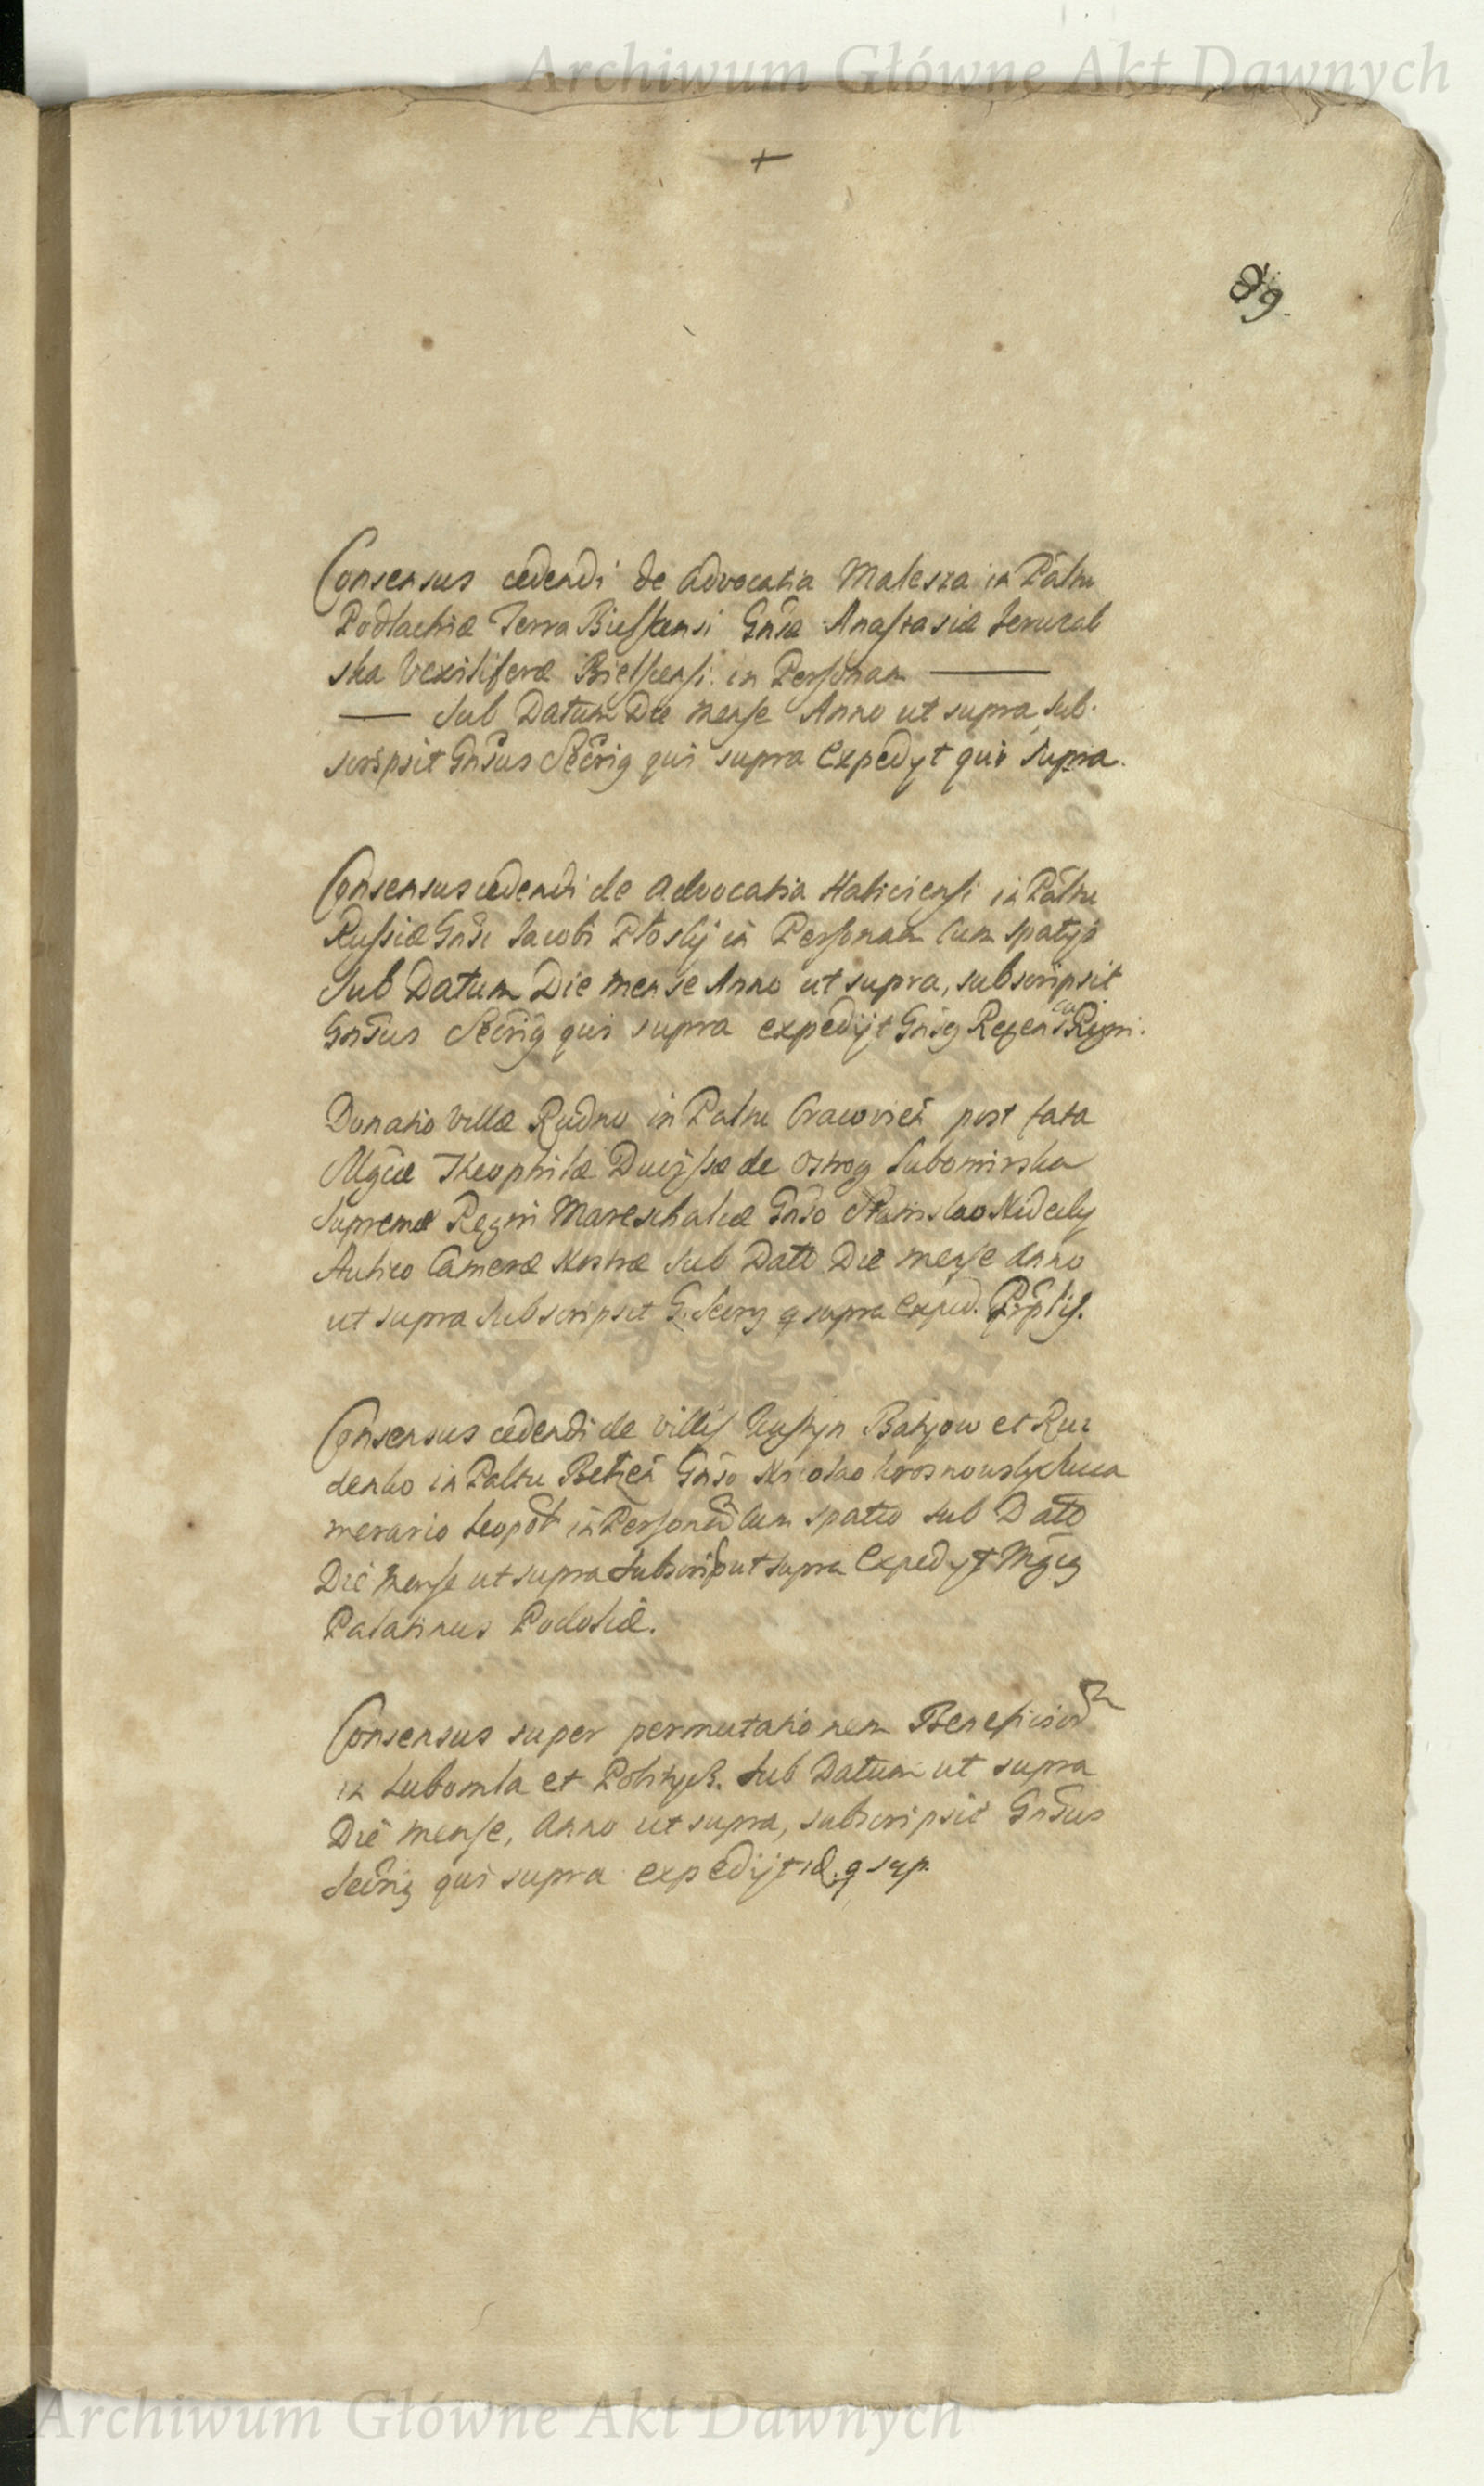 Archiwum Główne Akt Dawnych
+
89.
Consensus cedendi de Advocatia Malesza in Palnu
Podlachiæ Terra Bielscensi Gnsæ Anastasiæ Jeruzal
ska Vexiliferæ Bielscensi in Personam ———
—— Sub Datum Die mense Anno ut supra, Sub-
scripsit Gnsus Secrig qui supra Expedyt qui supra.
Consensus cedendi de Advocatia Haliciensi in Palnu
Russiæ Gnsi Jacobi Płoskij in Personam Cum spatijs
Sub Datum Die mense Anno ut supra, subscripsit
Gnsus Secrig qui supra expedijt Gnsg Regens Regni.
Donatio Villæ Rudno in Palnu Cracovien post fata
Mgcæ Theophilæ Ducissæ de Ostrog Lubomirska
Supremæ Regni Mareschalcæ Gnso Stanislao
Aulico Cameræ Nostræ Sub Dato Die mense Anno
ut supra Subscripsit G. Secrg q supra exped.
Consensus cedendi de Villis Batyow et Ru-
denko in Palnu Belzen Gnso
merario Leopol in Personam Cum spatio sub Dato
Die mense ut supra Subscrip ut supra Expedyt Mgcg
Palatinus Podoliæ.
Consensus super permutationem Beneficior
in Lubomla et Sub Datum ut supra
Die mense, Anno ut supra, subscripsit Gnsus
Secrig qui supra expedijt id. q sup.
Archiwum Główne Akt Dawnych